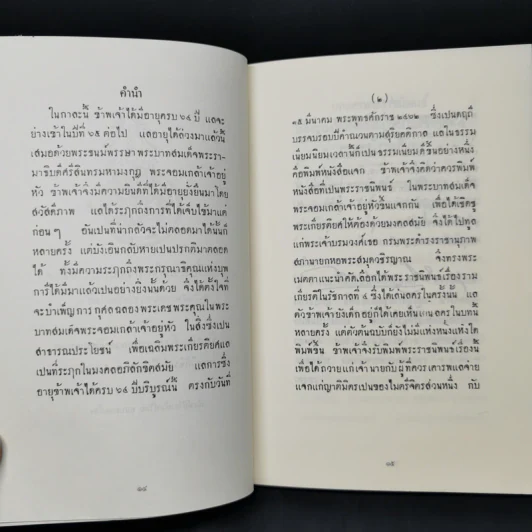 คำนำ
ในกาละนี้ ข้าพเจ้าได้มีอายุครบ ๖๔ ปี แลจะ
ย่างเข้าในปีที่ ๖๕ ต่อไป แลอายุได้ล่วงมาแล้วนี้
เสมอด้วยพระชนม์พรรษา พระบาทสมเด็จพระรา-
มาธิบดีศรีสินทรมหามงกุฎ พระจอมเกล้าเจ้าอยู่
หัว ข้าพเจ้าจึ่งมีความยินดีที่ได้มีอายุยั่งยืนมาโดย
สวัสดิภาพ แลได้ระฦกถึงการที่ได้เจ็บไข้มาแต่
ก่อน ๆ อันเปนที่น่ากลัวจะไม่ตลอดมาได้นั้นก็
หลายครั้ง แต่บังเอินกลับหายเปนปรกติมาตลอด
ได้ ทั้งมีความระฦกถึงพระกรุณาธิคุณแห่งบุพ
การีได้มีมาแล้วเปนอย่างยิ่งนั้นด้วย จึ่งได้ตั้งใจที่
จะบำเพ็ญการกุศลฉลองพระเดชพระคุณในพระ
บาทสมเด็จพระจอมเกล้าเจ้าอยู่หัว ในสิ่งซึ่งเปน
สาธารณประโยชน์ เพื่อเฉลิมพระเกียรติยศแล
เปนที่ระฦกในมงคลอรภิลักขิตสมัย แลการซึ่ง
อายุข้าพเจ้าได้ครบ ๖๔ ปีบริบูรณ์นี้ ตรงกับวันที่
๑๔
(๒)
๓๑ มีนาคม พระพุทธศักราช ๒๔๖๒ ซึ่งเปนดฤถี
บรรจบรอบปีคำนวณตามสุริยคติกาล แลในธรรม
เนียมนิยมเวลานี้ก็เปนธรรมเนียมดีขึ้นอย่างหนึ่ง
คือพิมพ์หนังสือแจก ข้าพเจ้าจึ่งคิดว่าควรพิมพ์
หนังสือที่เปนพระราชนิพนธ์ ในพระบาทสมเด็จ
พระจอมเกล้าเจ้าอยู่หัวขึ้นแจกกัน เพื่อได้เชิดชู
พระเกียรติคุณให้ต้องด้วยมงคลสมัย จึ่งได้ไปทูล
แก่พระเจ้าบรมวงศ์เธอ กรมพระดำรงราชานุภาพ
สภานายกหอพระสมุดวชิรญาณ จึ่งทรงพระ
เมตตาแนะนำคัดเลือกได้พระราชนิพนธ์เรื่องราม
เกียรติ์ในรัชกาลที่ ๔ ซึ่งได้เล่นลครในครั้งนั้น แล
ตัวข้าพเจ้ายังเด็กอยู่ก็ได้เคยเห็นเล่นลครในบทนี้
หลายครั้ง แต่ตัวต้นฉบับก็ยังไม่มีแห่งหนึ่งแห่งใด
พิมพ์ขึ้น ข้าพเจ้าจึ่งรับพิมพ์พระราชนิพนธ์เรื่องนี้
เพื่อได้ถวายแก่เจ้านายกับผู้ที่ควรเคารพแลจ่าย
แจกแก่ญาติมิตรเปนของไมตรีจิตรส่วนหนึ่ง กับ
๑๕